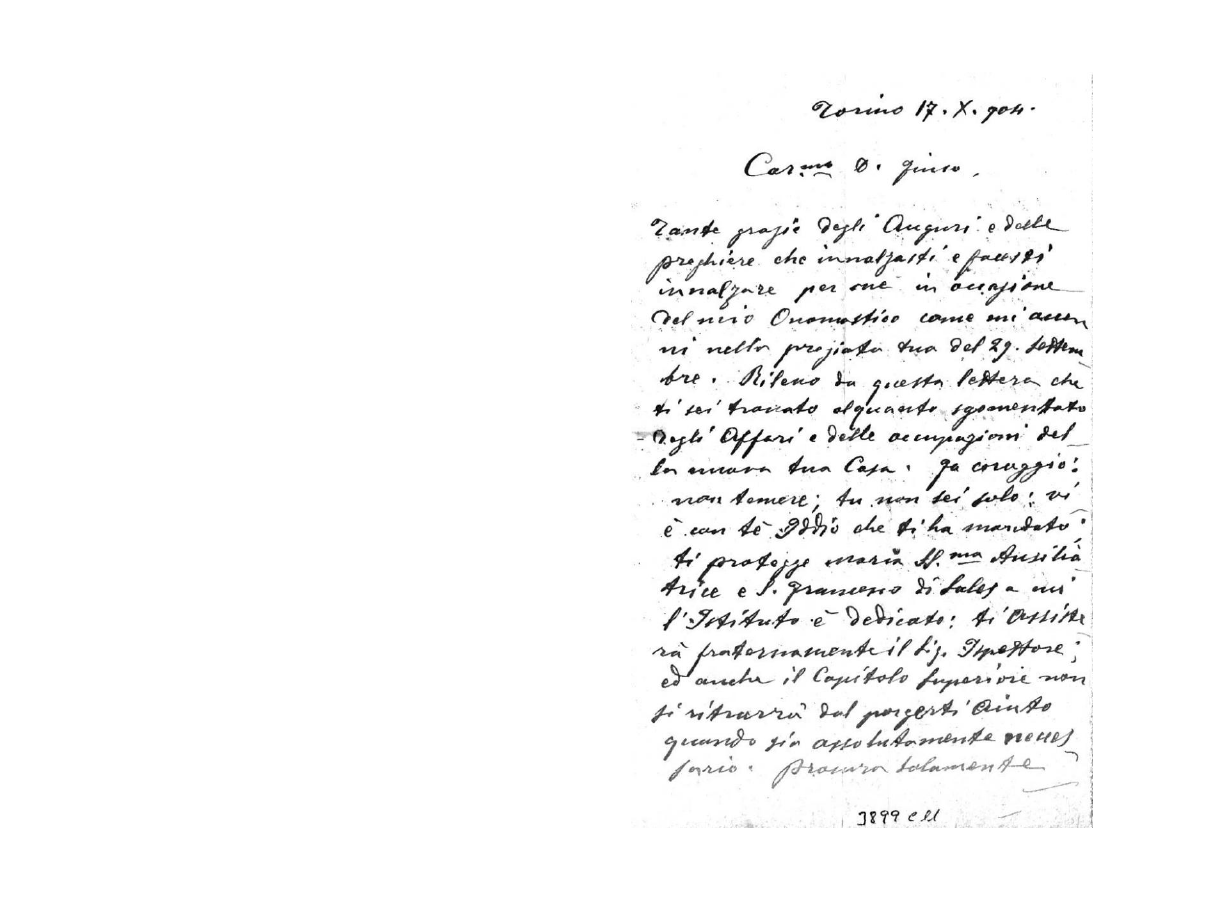 Torino 17. X. 904.
Car.mo D. Giuso,
Tante grazie degli Auguri e delle
preghiere che innalzasti e facesti
innalzare per me in occasione
del mio Onomastico come mi accen
ni nella pregiata tua del 29. settem
bre. Rilevo da questa lettera che
ti sei trovato alquanto sgomentato
dagli Affari e delle occupazioni del
la nuova tua Casa. Fa coraggio:
non temere; tu non sei solo: vi
è con tè Iddio che ti ha mandato:
ti protegge Maria SS.ma Ausilia
trice e S. Francesco di Sales a cui
l'Istituto è dedicato: ti Assiste
rà fraternamente il Sig. Ispettore;
ed anche il Capitolo Superiore non
si ritrarrà dal porgerti Aiuto
quando sia assolutamente neces
sario. Procura solamente
3899 C11